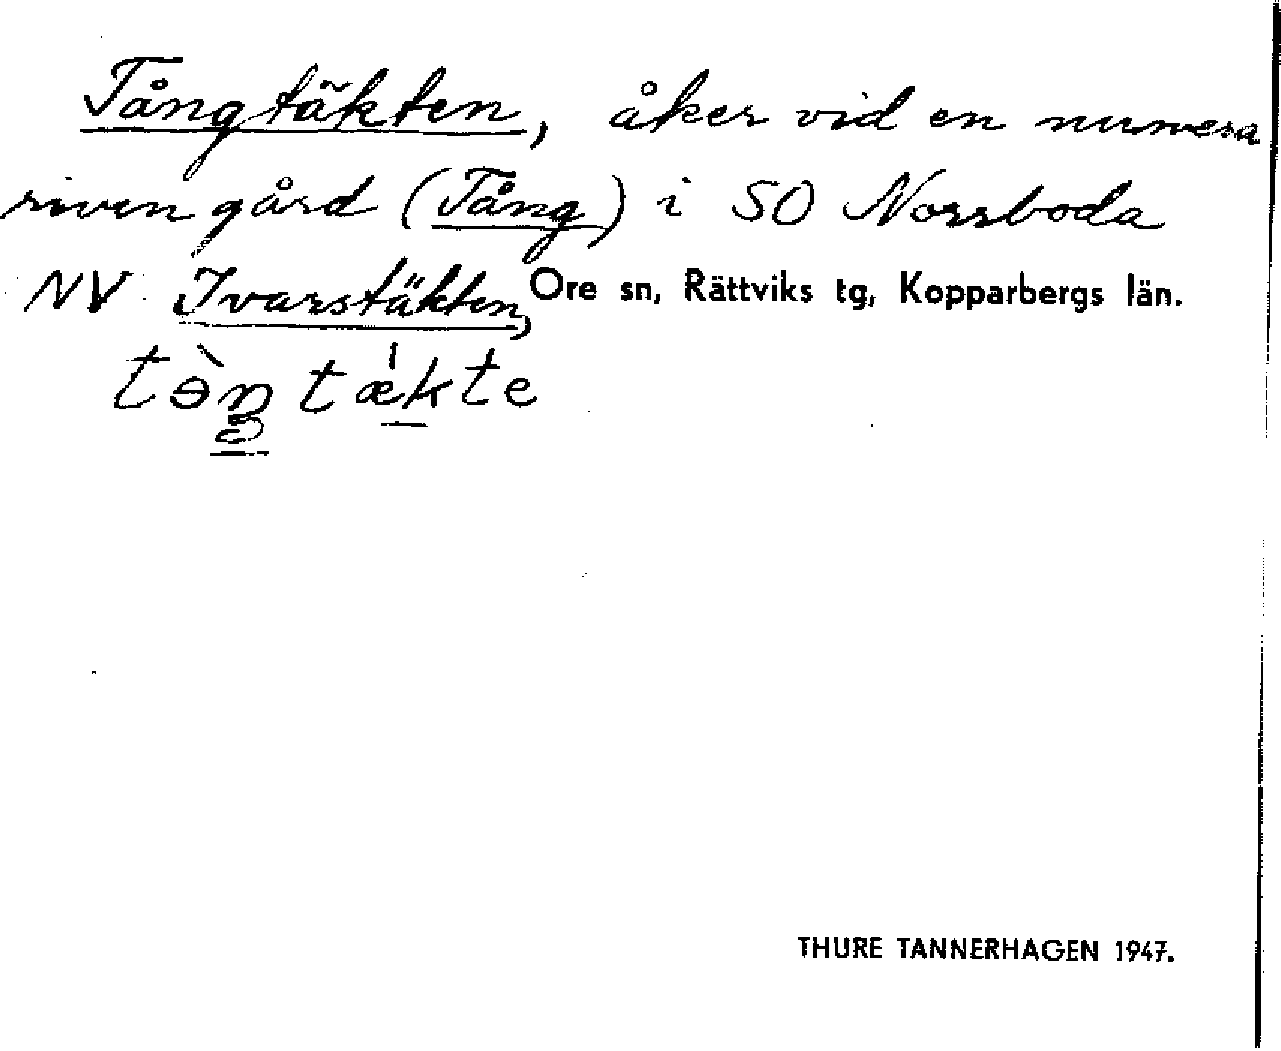 Tångtäkten, åker vid en numera
riven gård (Tång) i SO Norrboda
NV Ivarstäkten, Ore sn, Rättviks tg, Kopparbergs län.
tə̀ŋ tǽkte
THURE TANNERHAGEN 1947.